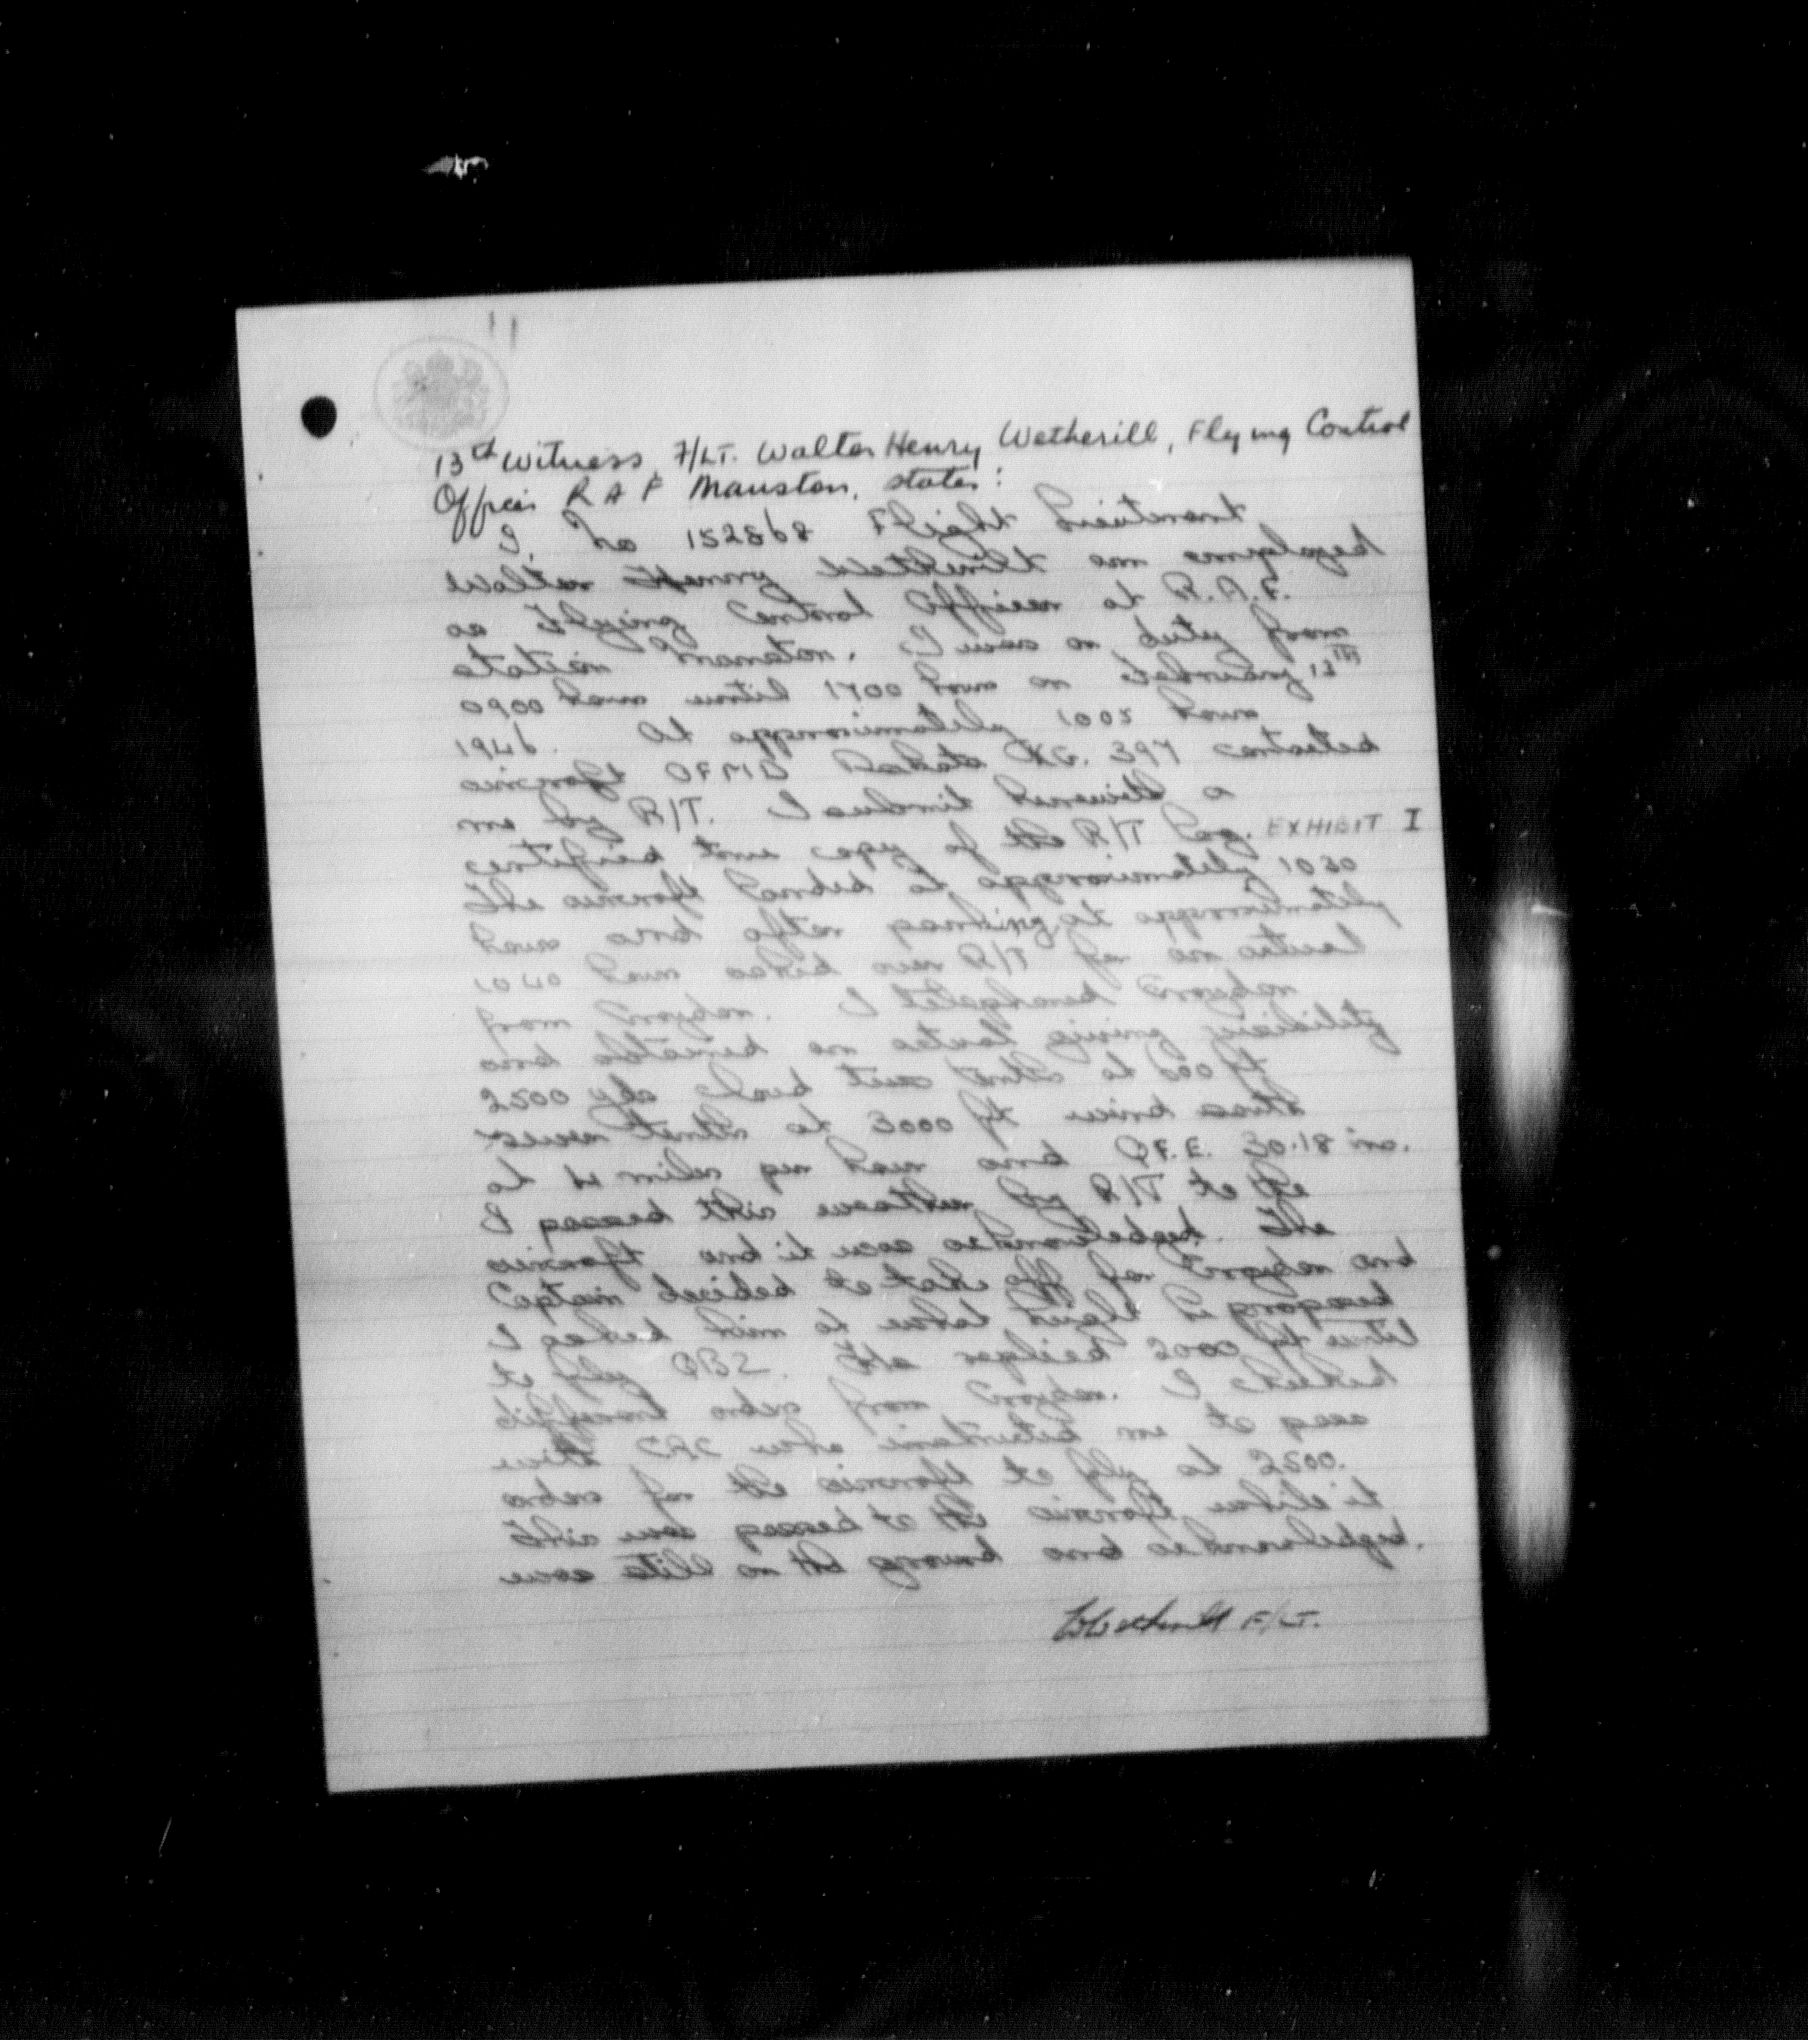 13th Witness, F/LT. Walter Henry Wetherill, Flying Control
Officer RAF Manston, states:
I, No 152868 Flight Lieutenant
Walter Henry Wetherill am employed
as Flying Control Officer at R.A.F.
station Manston. I was on duty from
0900 hrs until 1700 hrs on Thursday 12TH
1946. At approximately 1005 hrs
aircraft Dakota 397 contacted
me by R/T. I submit herewith a
certified true copy of the R/T log. EXHIBIT I
The aircraft landed at approximately 1030
hrs and after parking at approximately
1040 hrs asked R/T for an actual
from Croydon. I telephoned Croydon
and obtained an actual giving visibility
2500 yds tenths at 600 ft
seven tenths at 3000 ft wind south
at 14 miles per hour and Q.F.E. 30.18 ins.
I passed this weather by R/T to the
aircraft and it was acknowledged. The
Captain decided to take off for Croydon and
I asked him at what height he proposed
to fly The replied 2000 ft until
different orders from Croydon. I checked
with who instructed me to pass
orders for the aircraft to fly at 2500.
This was passed to the aircraft while it
was still on the ground and acknowledged.
Wetherill F/LT.